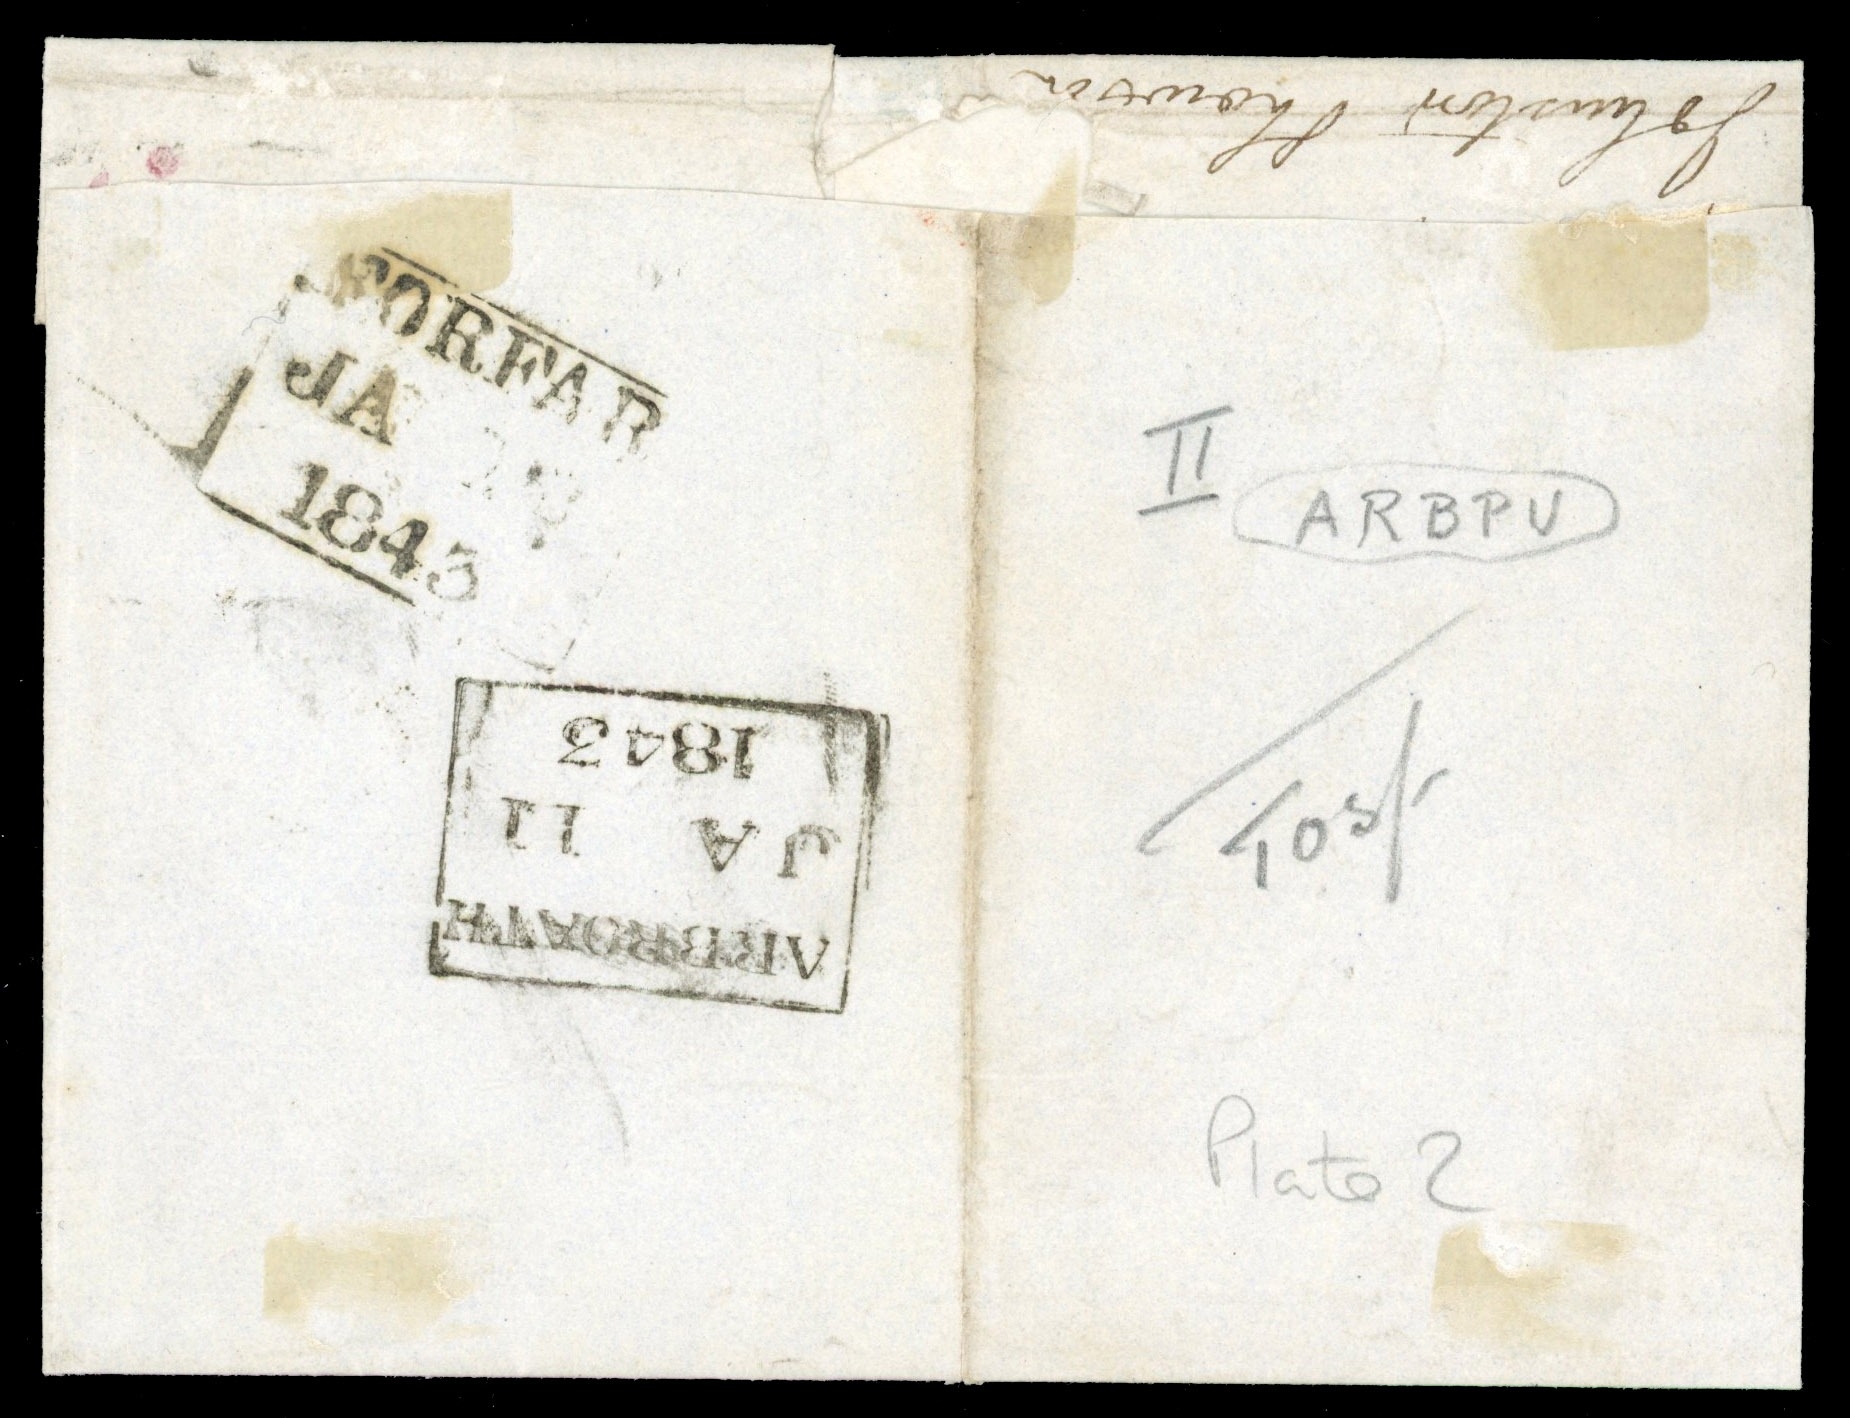 Johnston
FORFAR
JA
1843
ARBROATH
JA 11
1843
II
ARBPU
Plate 2